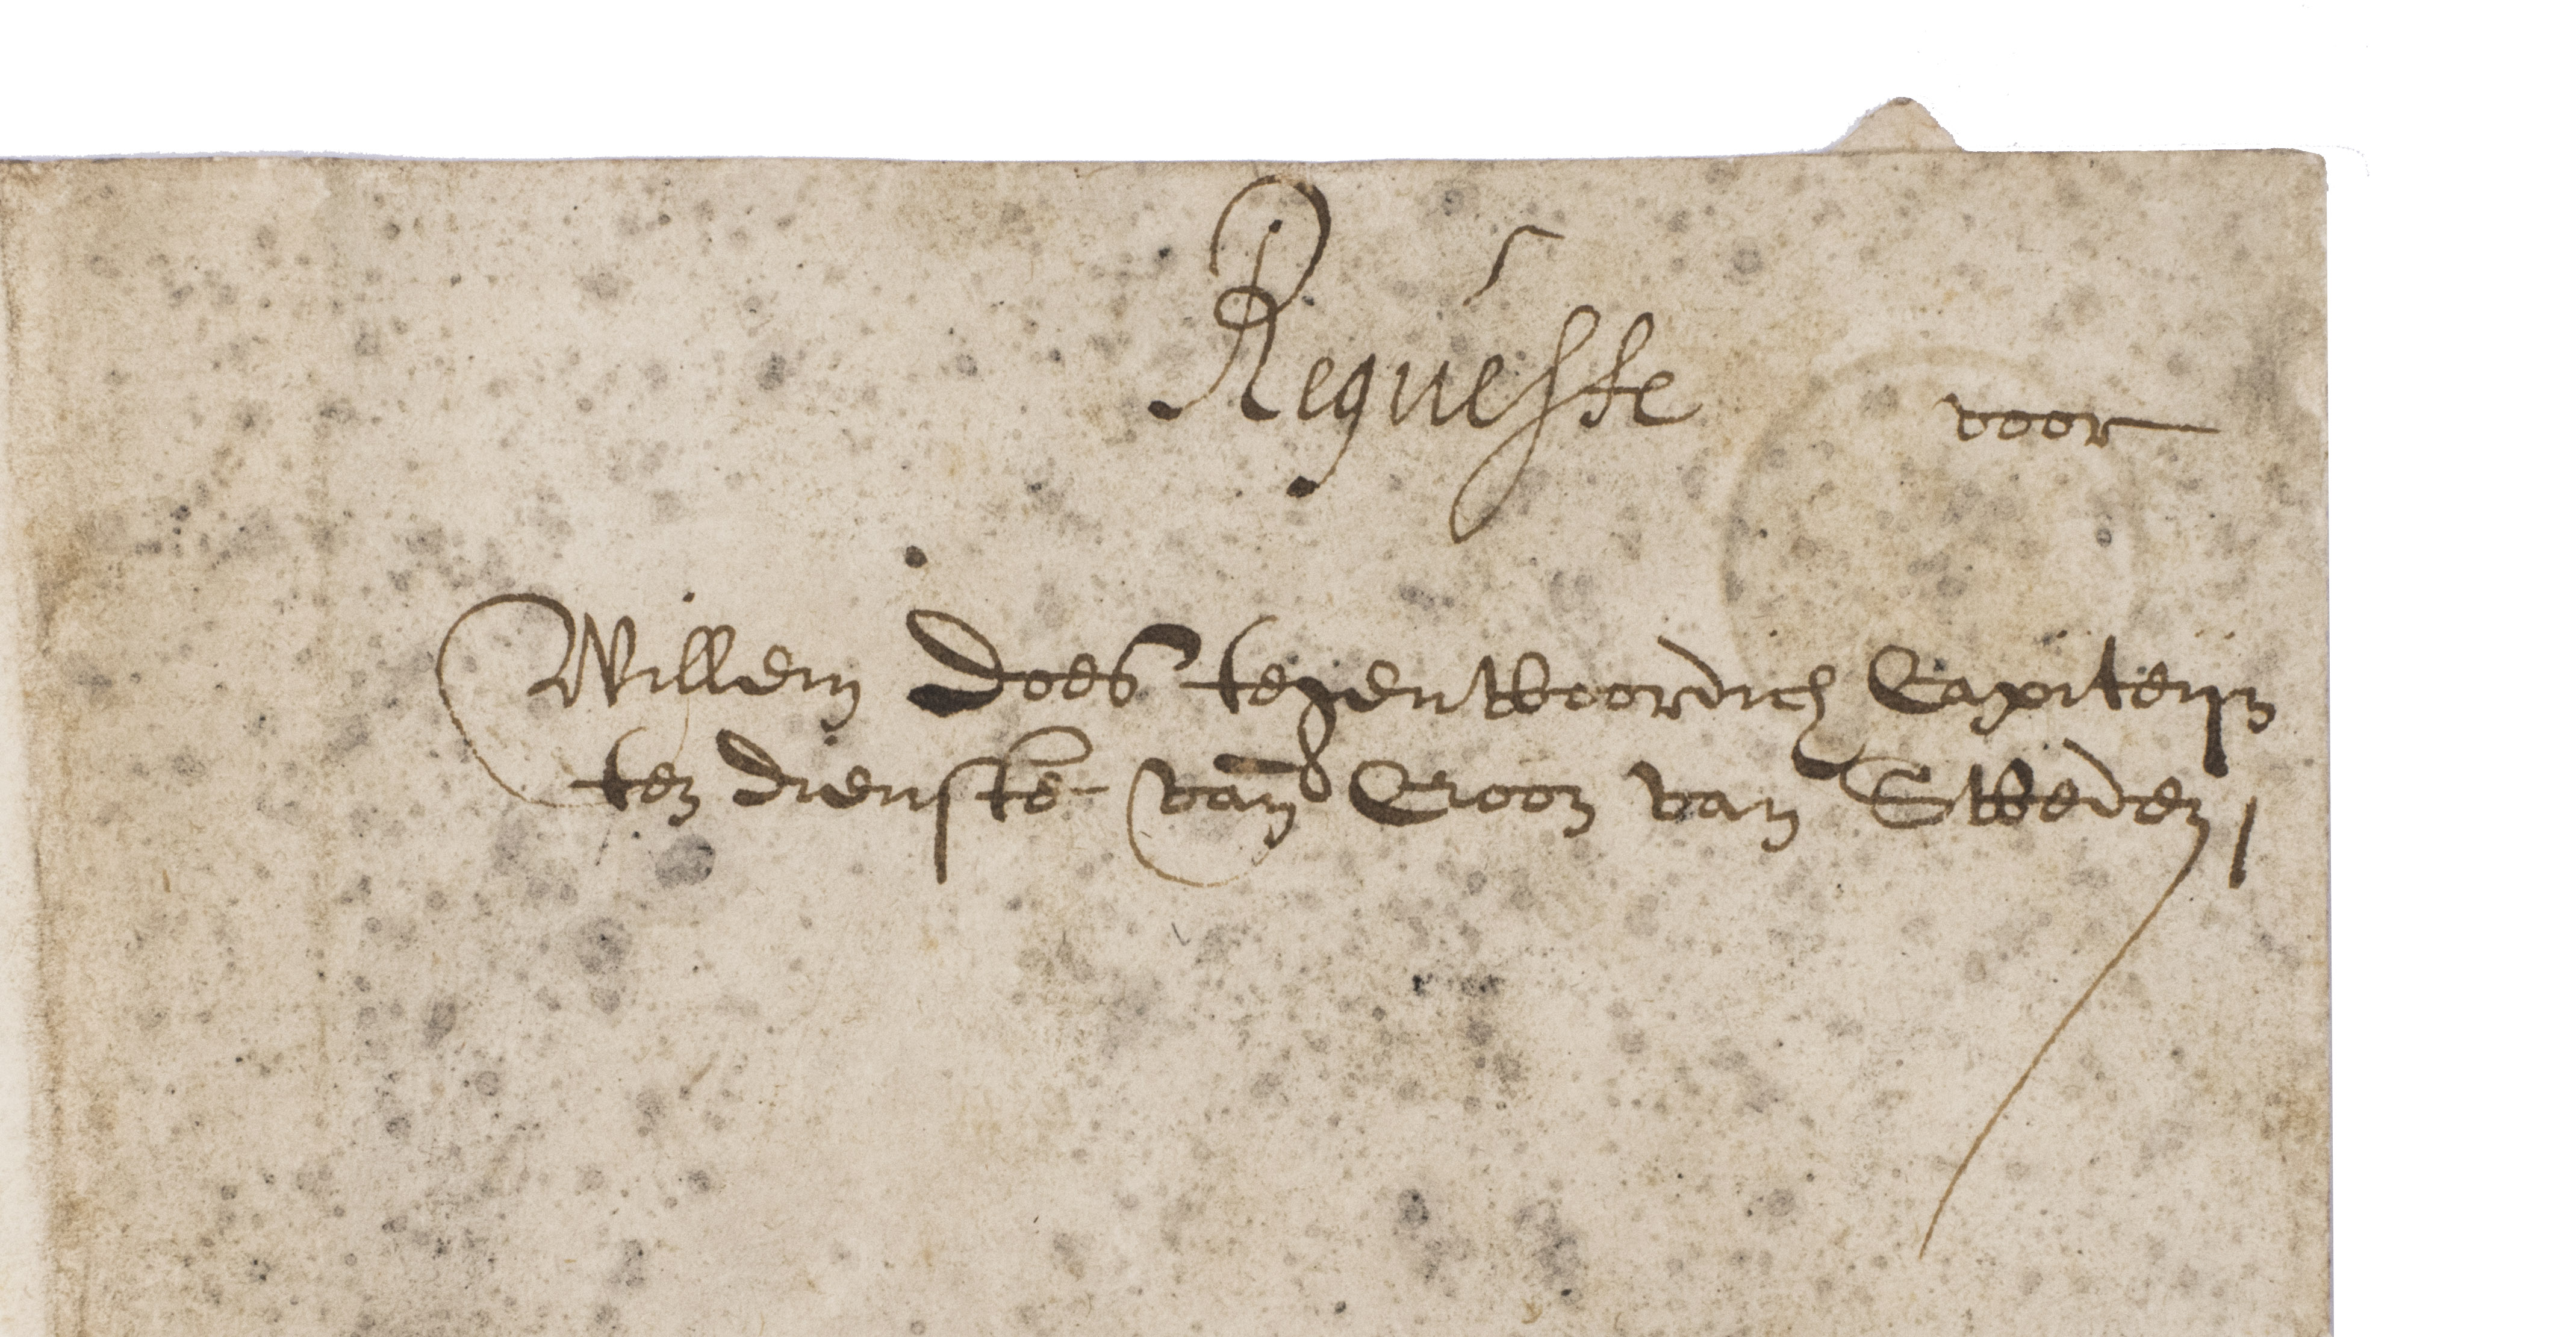 Requeste voor
Willem Does tegenwoordich Capiteijn
ten dienste van Croon van Sweden /